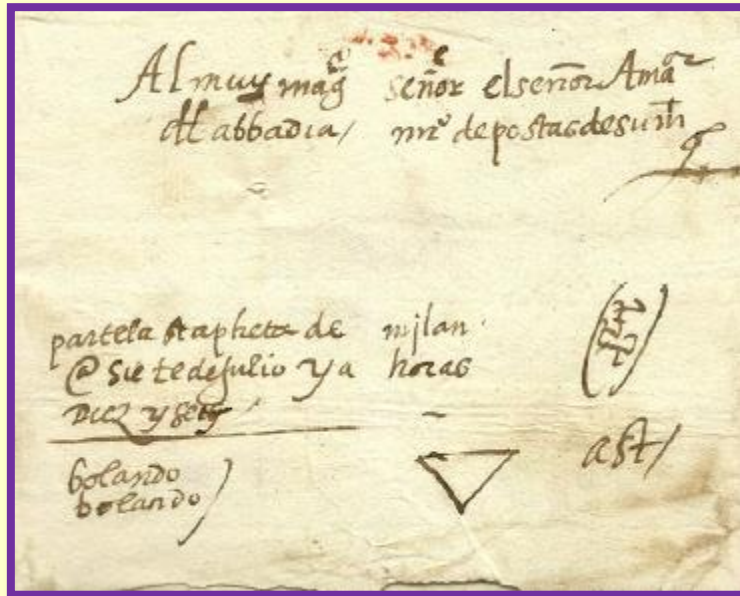 Al muy mag^co señor el señor Amador
dll abbadia / m^ro de postas de su m^t
parte la stapheta de mjlan
@ siete de Julio y a horas
Diez y seys
bolando
bolando
ast/